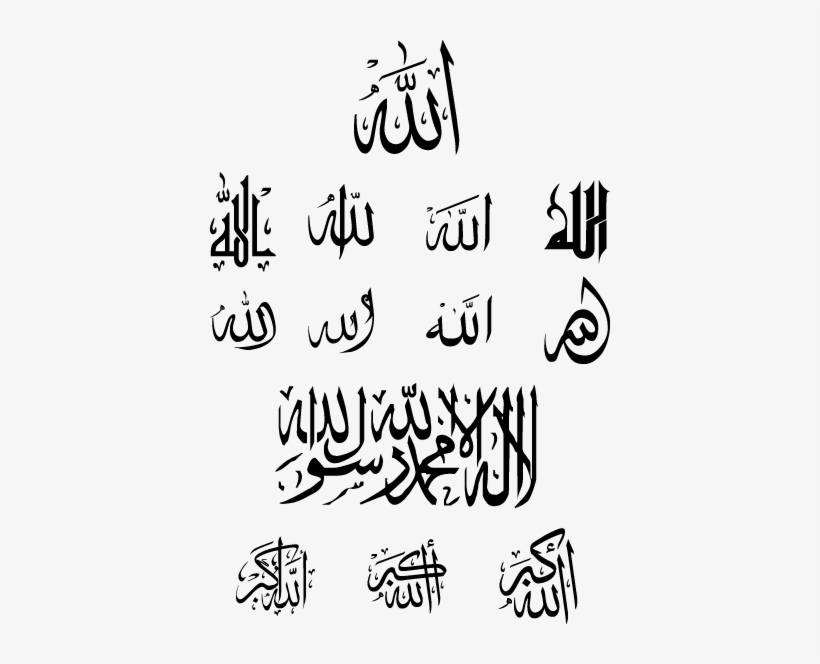 الله
الله الله لله بالله
الله الله الله الله
لا إله إلا الله محمد رسول الله
الله أكبر الله أكبر الله أكبر